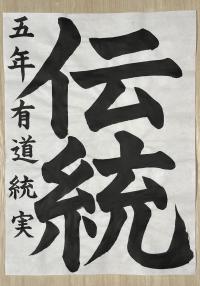 伝統
五年有道統実